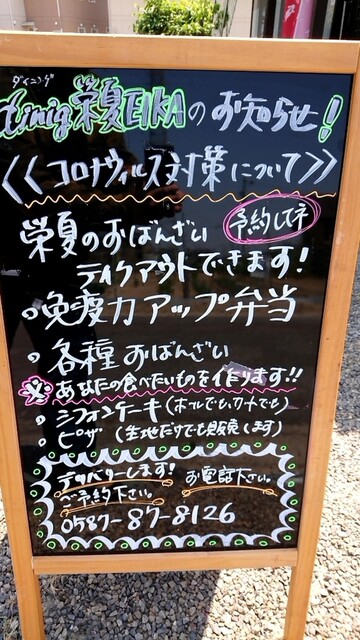 ダイニング
dinig栄夏EIKAのお知らせ!
《コロナウィルス対策について》
栄夏のおばんざい 予約してネ
テイクアウトできます!
・免疫力アップ弁当
・各種おばんざい
※あなたの食べたいものを作ります!!
・シフォンケーキ(ホールでも、カットでも)
・ピザ(生地だけでも販売します)
デリバリーします! お電話下さい。
ご予約下さい。
0587-87-8126